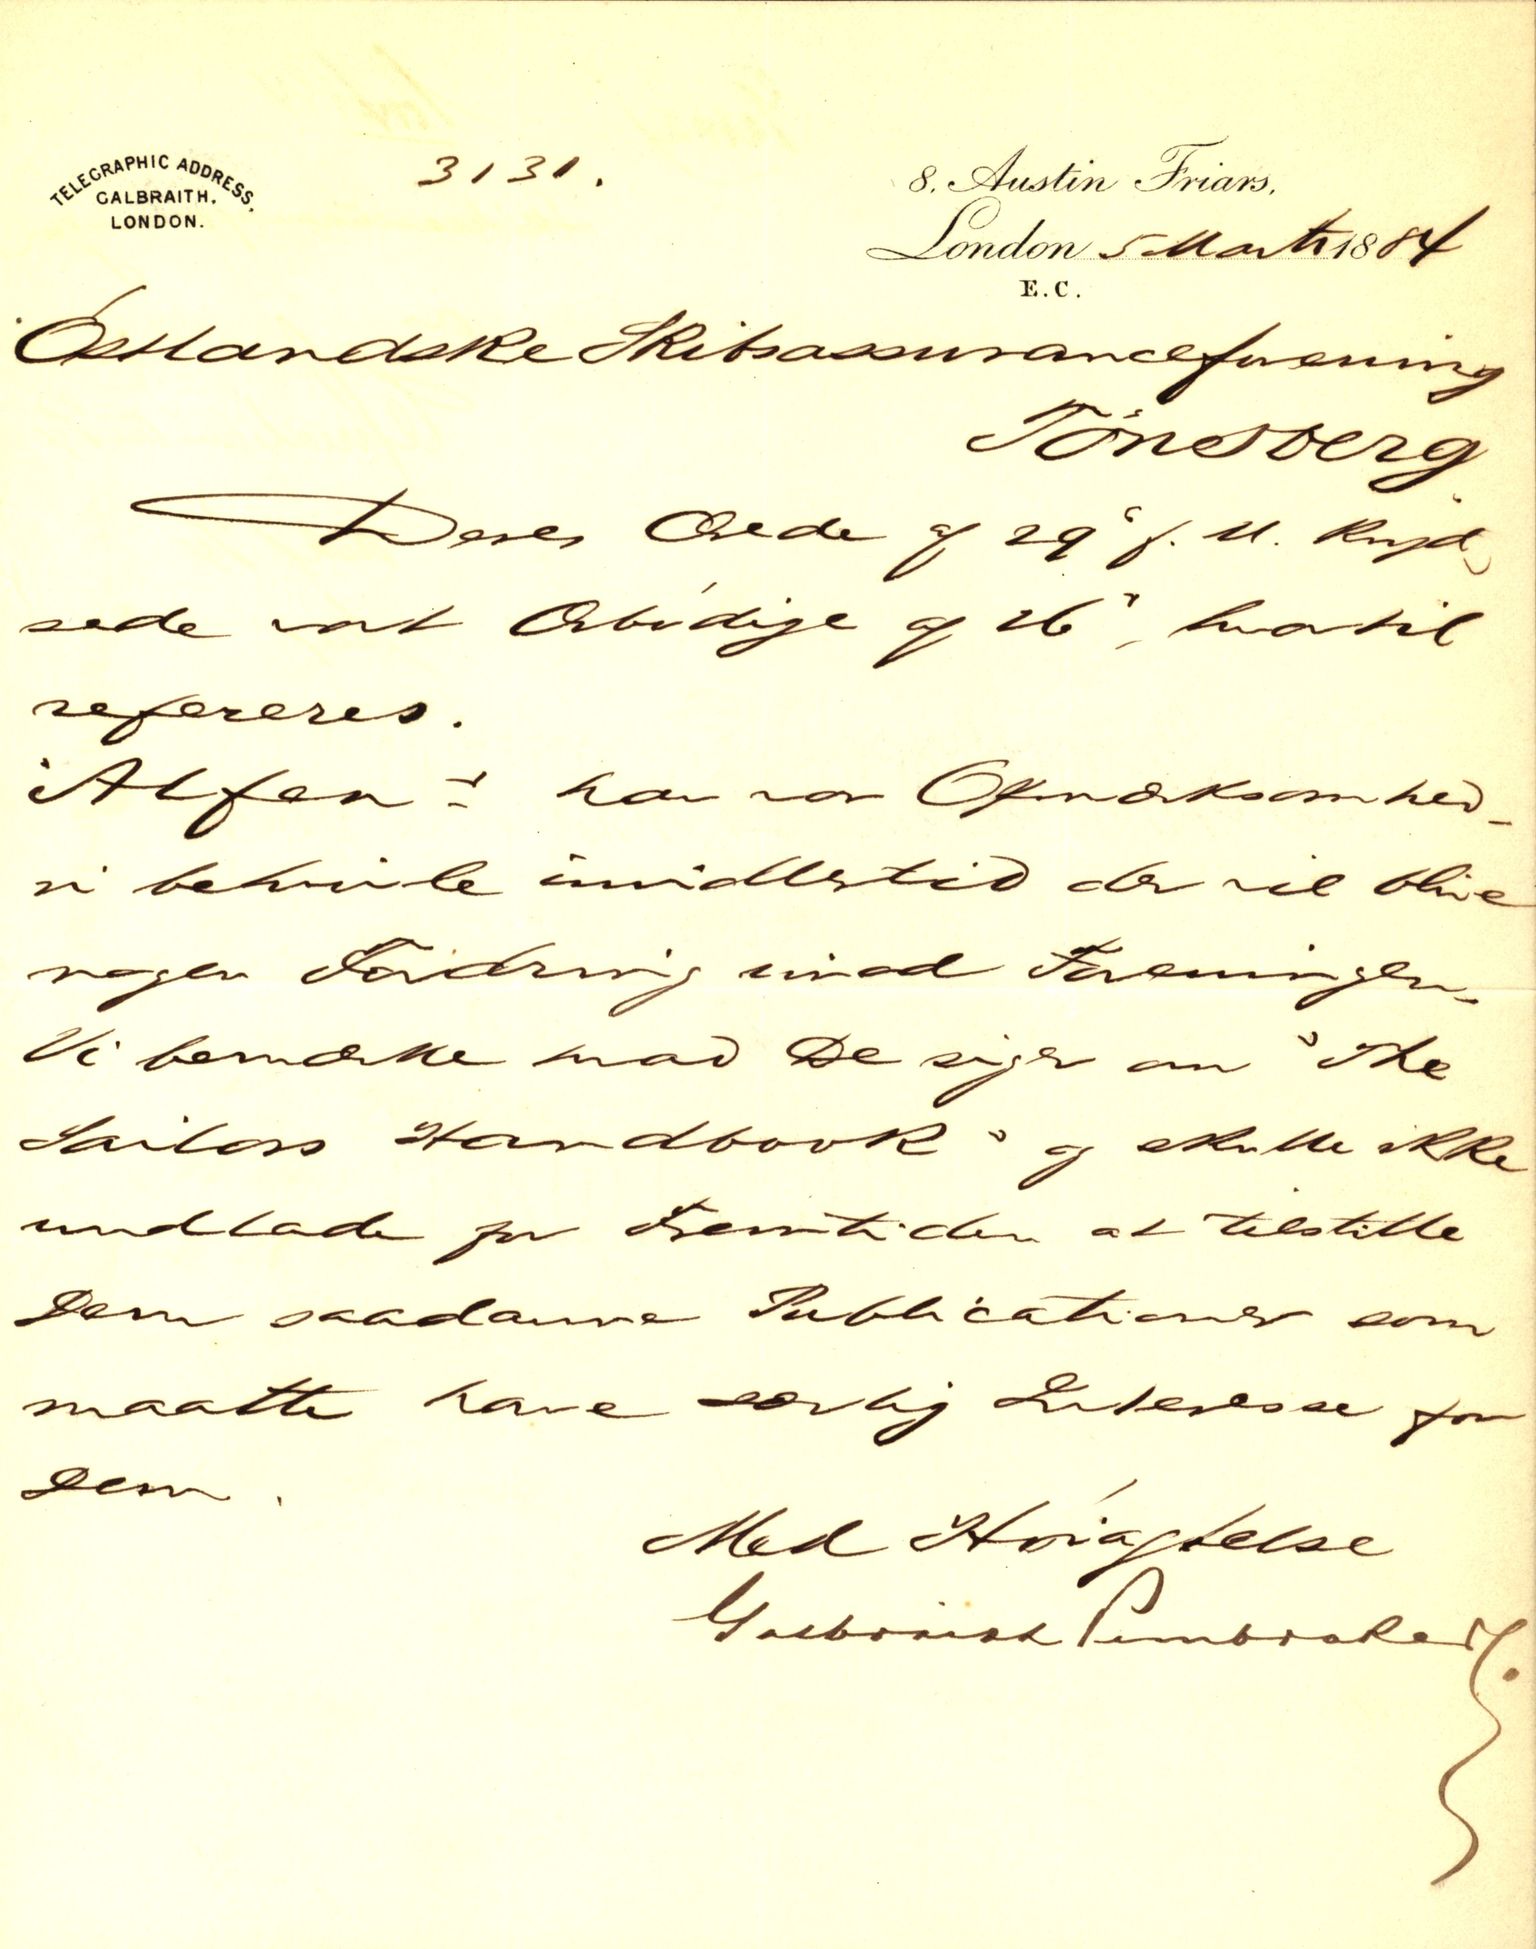 TELEGRAPHIC ADDRESS,
GALBRAITH.
LONDON.
3131.
8. Austin Friars,
London 5 Marts 1884
E.C.
Östlandske Skibsassuranceforening
Tönsberg
Deres Ærede af 29' f. M. krydsede
vort Ærbödige af 26", hvortil
refereres.
"Alfen" har vor Opmærksomhed -
vi betvivle imidlertid der vil blive
nogen Fordring imod Foreningen.
Vi bemærke hvad De siger om "The
Sailors Handbook" og skulle ikke
undlade for Fremtiden at tilstille
Dem saadanne Publicationer som
maatte have særlig Interesse for
Dem.
Med Höiagtelse
Galbraith Pembroke & Co.